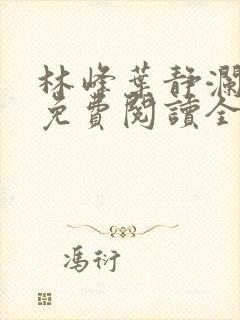 林峰葉静瀾
免費閱讀全
馮衍